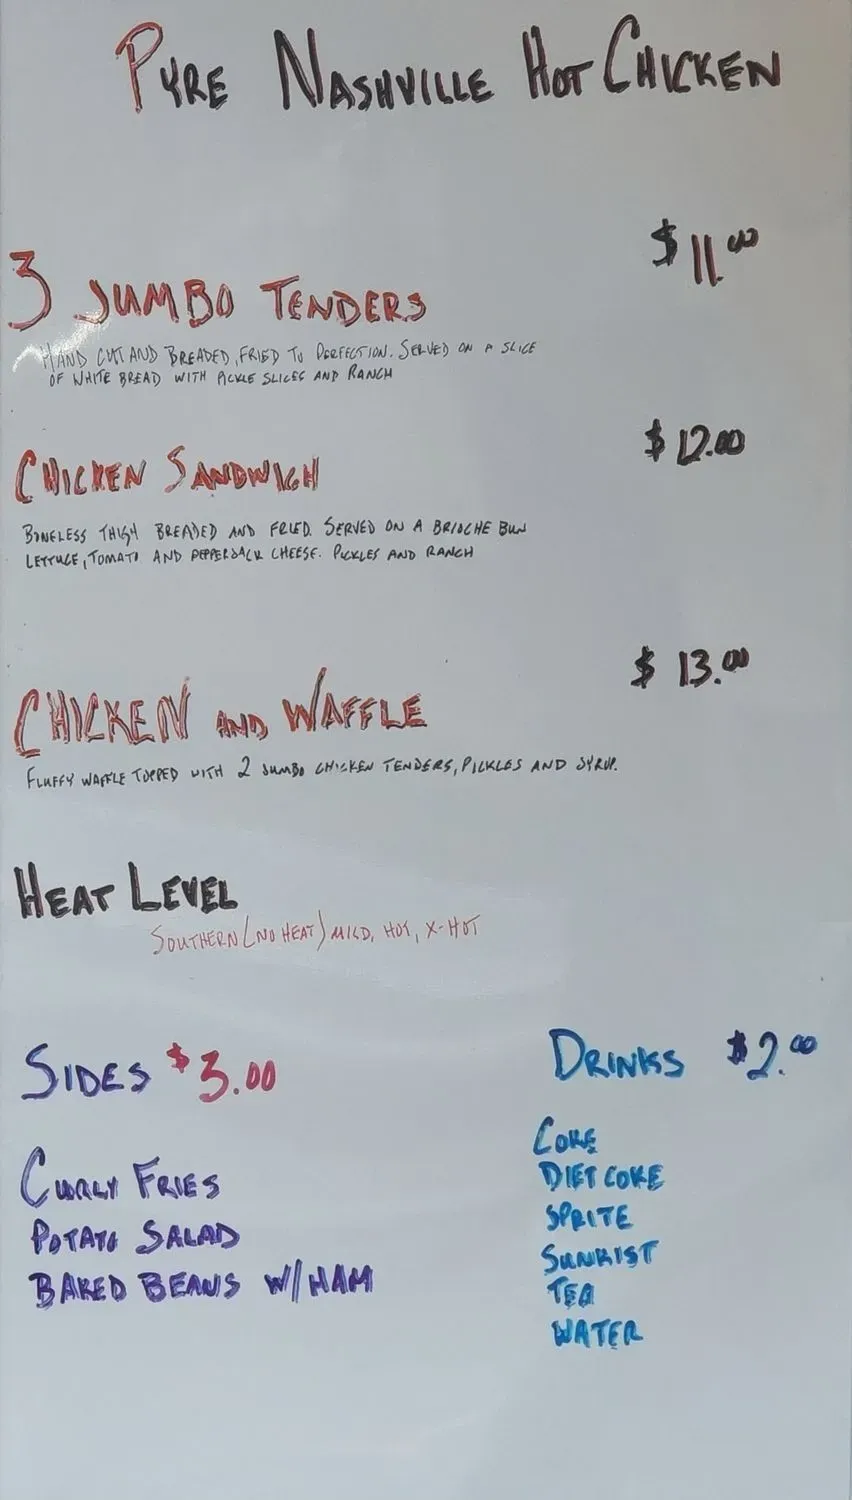 PYRE NASHVILLE HOT CHICKEN
3 JUMBO TENDERS $11.00
HAND CUT AND BREADED, FRIED TO PERFECTION. SERVED ON A SLICE
OF WHITE BREAD WITH PICKLE SLICES AND RANCH
CHICKEN SANDWICH $12.00
BONELESS THIGH BREADED AND FRIED. SERVED ON A BRIOCHE BUN
LETTUCE, TOMATO AND PEPPERJACK CHEESE. PICKLES AND RANCH
CHICKEN AND WAFFLE $13.00
FLUFFY WAFFLE TOPPED WITH 2 JUMBO CHICKEN TENDERS, PICKLES AND SYRUP.
HEAT LEVEL
SOUTHERN (NO HEAT) MILD, HOT, X-HOT
SIDES $3.00
CURLY FRIES
POTATO SALAD
BAKED BEANS W/HAM
DRINKS $2.00
COKE
DIET COKE
SPRITE
SUNKIST
TEA
WATER